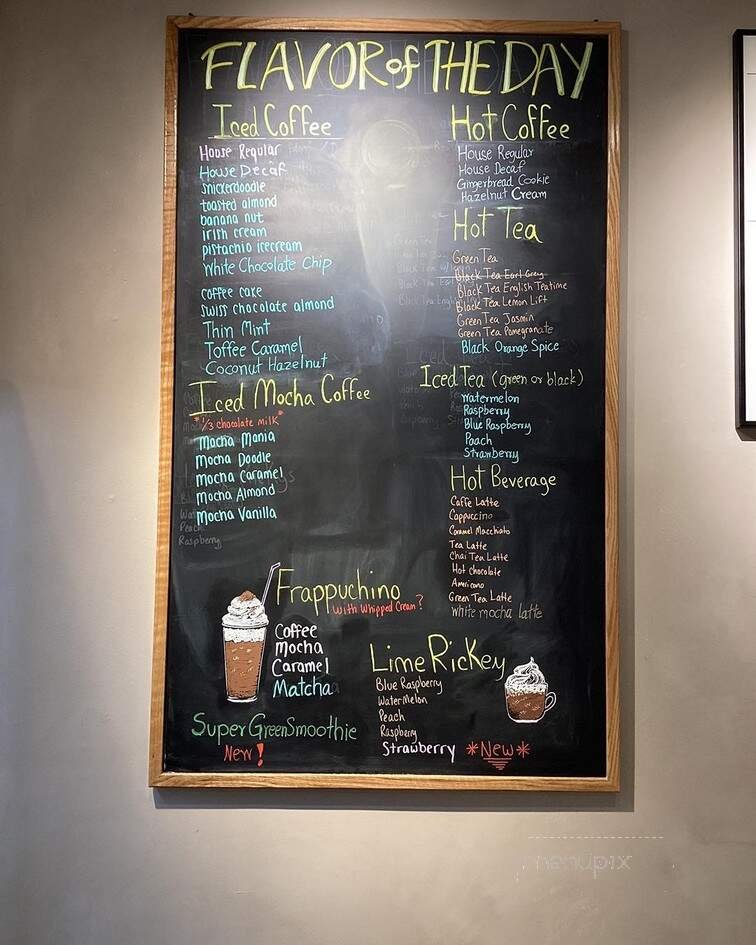 FLAVOR of THE DAY
Iced Coffee
House Regular
House Decaf
snickerdoodle
toasted almond
banana nut
irish cream
pistachio icecream
White Chocolate Chip
coffee cake
swiss chocolate almond
Thin Mint
Toffee Caramel
Coconut Hazelnut
Iced Mocha Coffee
*1/3 chocolate milk*
Mocha Mania
Mocha Doodle
Mocha Caramel
Mocha Almond
Mocha Vanilla
Peach
Raspberry
Hot Coffee
House Regular
House Decaf
Gingerbread Cookie
Hazelnut Cream
Hot Tea
Green Tea
Black Tea Earl Grey
Black Tea English Teatime
Black Tea Lemon Lift
Green Tea Jasmin
Green Tea Pomegranate
Black Orange Spice
Iced Tea (green or black)
Watermelon
Raspberry
Blue Raspberry
Peach
Strawberry
Hot Beverage
Caffe Latte
Cappuccino
Caramel Macchiato
Tea Latte
Chai Tea Latte
Hot chocolate
Americano
Green Tea Latte
White mocha latte
Frappuchino
with Whipped Cream?
Coffee
Mocha
Caramel
Matcha
Super Green Smoothie
New!
Lime Rickey
Blue Raspberry
Watermelon
Peach
Raspberry
Strawberry *New*
menupix